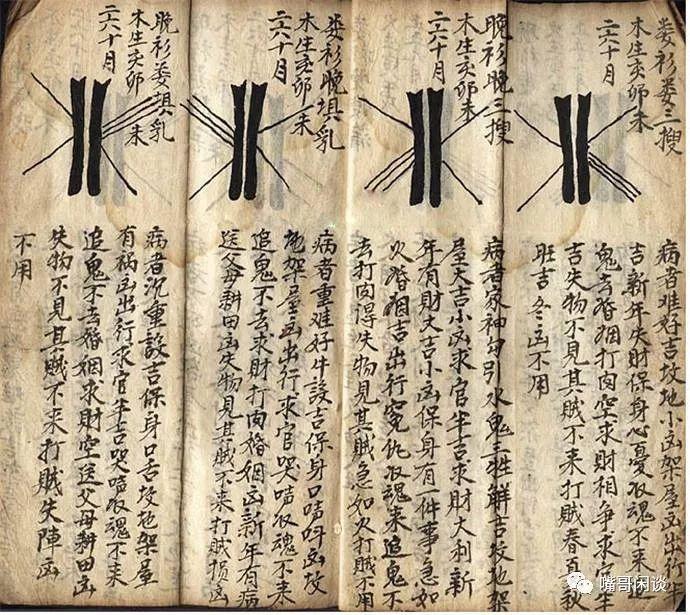 娄衫娄三搜
木生亥卯未
二六十月
病者难好吉坟地小凶架屋凶出行小
吉新年失财保身心憂收魂不来追
鬼去婚姻打肉空求財相争求官
吉失物不見其賊不来打賊春夏敗
旺吉冬凶不用
晚衫晚三搜
木生亥卯未
二六十月
病者家神勾引水鬼三牲解吉坟地架
屋大吉小凶求官半吉求財大利新
年有財大吉小凶保身有一件事急如
火婚姻吉出行空仇收魂来追鬼不
去打肉得失物見其賊急如火打賊不用
娄衫晚填乳
木生亥卯未
二六十月
病者重难好牛設吉保身口哘呌凶坟
地架屋凶出行求官哭唶收魂不来
追鬼不去求財打肉婚姻凶新年有病
送父母耕田凶失物見其賊不来打賊損凶
晚衫娄填乳
木生亥卯未
二六十月
病者沉重設吉保身口舌坟地架屋
有禍凶出行求官半吉哭唶收魂不来
追鬼不去婚姻求財空送父母耕田凶
失物不見其賊不来打賊失陣凶
不用
嘴哥闲谈